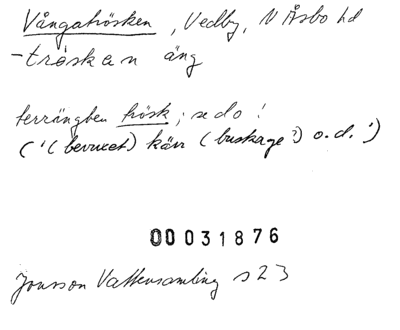 Vångatrösken, Vedby, N Åsbo hd
-trösken äng
terrängben trösk; se do!
('(bevuxet) kärr (buskage?) o.d.')
00031876
Jonsson Vattensamling s 23